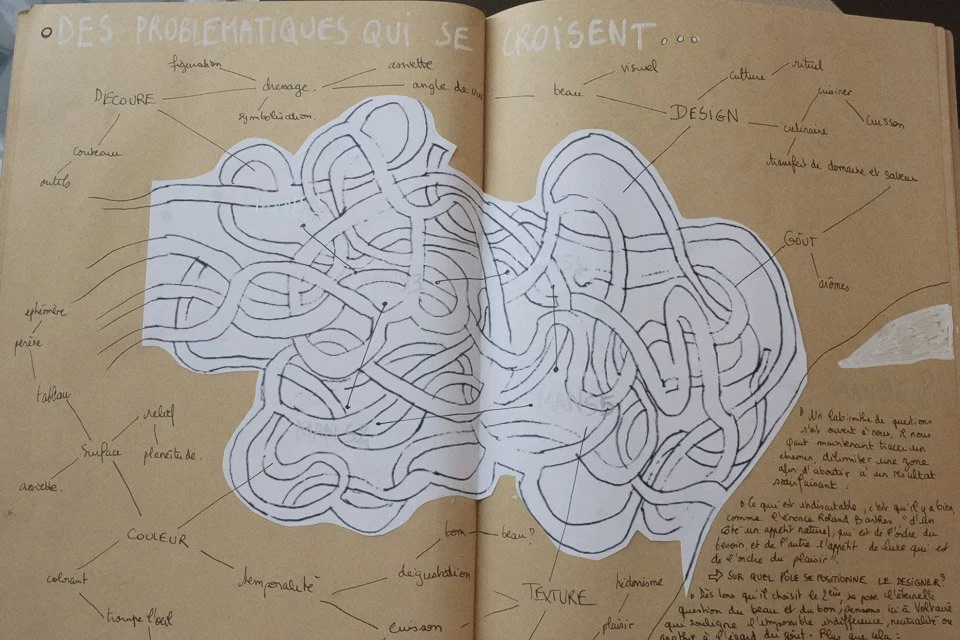 DES PROBLEMATIQUES QUI SE CROISENT...
figuration
assiette
visuel
culture
rituel
DECOUPE
dressage
angle de vue
beau
DESIGN
cuisiner
symbolisation
cuisson
culinaire
couteau
transfert de domaine et saveur
outils
GOÛT
arômes
ephémère
périssé
tableau
relief
surface
planéitude.
assiette.
MANGE
MANGE
MANGE?
° Un labirinthe de questions
s'est ouvert à nous, il nous
faut maintenant tracer un
chemin délimiter une zone
afin d'aboutir à un résultat
satisfaisant.
° Ce qui est indiscutable, c'est qu'il y a bien,
comme l'énonce Roland Barthes "d'un
côté un appétit naturel, qui est de l'ordre du
besoin, et de l'autre l'appétit de luxe qui est
de l'ordre du plaisir".
⇨ SUR QUEL PÔLE SE POSITIONNE LE DESIGNER?
° Dès lors qu'il choisit le 2ème, se pose l'éternelle
question du beau et du bon, pensons ici à Voltaire
qui souligne l'impossible indifférence, neutralité ou
COULEUR
bon
beau?
colorant
temporalité
dégustation
TEXTURE
hédonisme
trompe l'oeil
cuisson
plaisir